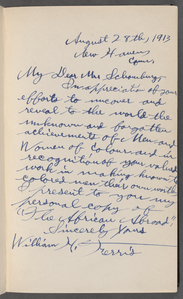 August 27th, 1913
New Haven
Conn.
My Dear Mr. Schomburg
In appreciation of your
efforts to uncover and
reveal to the world the
unknown and forgotten
achievements of Men and
Women of Colour and in
recognition of your valued
work in making known to
colored men their own worth
I present to you my
personal copy of
"The African Abroad"
Sincerely Yours
William H. Ferris